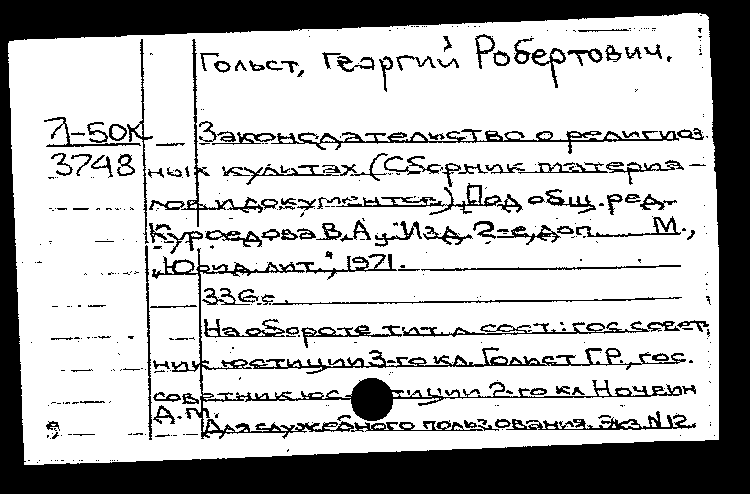 Гольст, Георгий Робертович.
Л-50К Законодательство о религиоз
3748 ных культах (Сборник материа-
лов и документов). Под общ. ред.
Куроедова В.А., Изд. 2-е, доп. М.,
„Юрид. лит.", 1971.
336 с.
На обороте тит. л. сост.: гос. совет-
ник юстиции 3-го кл. Гольст Г.Р., гос.
советник юстиции 2-го кл. Ночвин
Д.М.
Для служебного пользования. Экз. N 12.